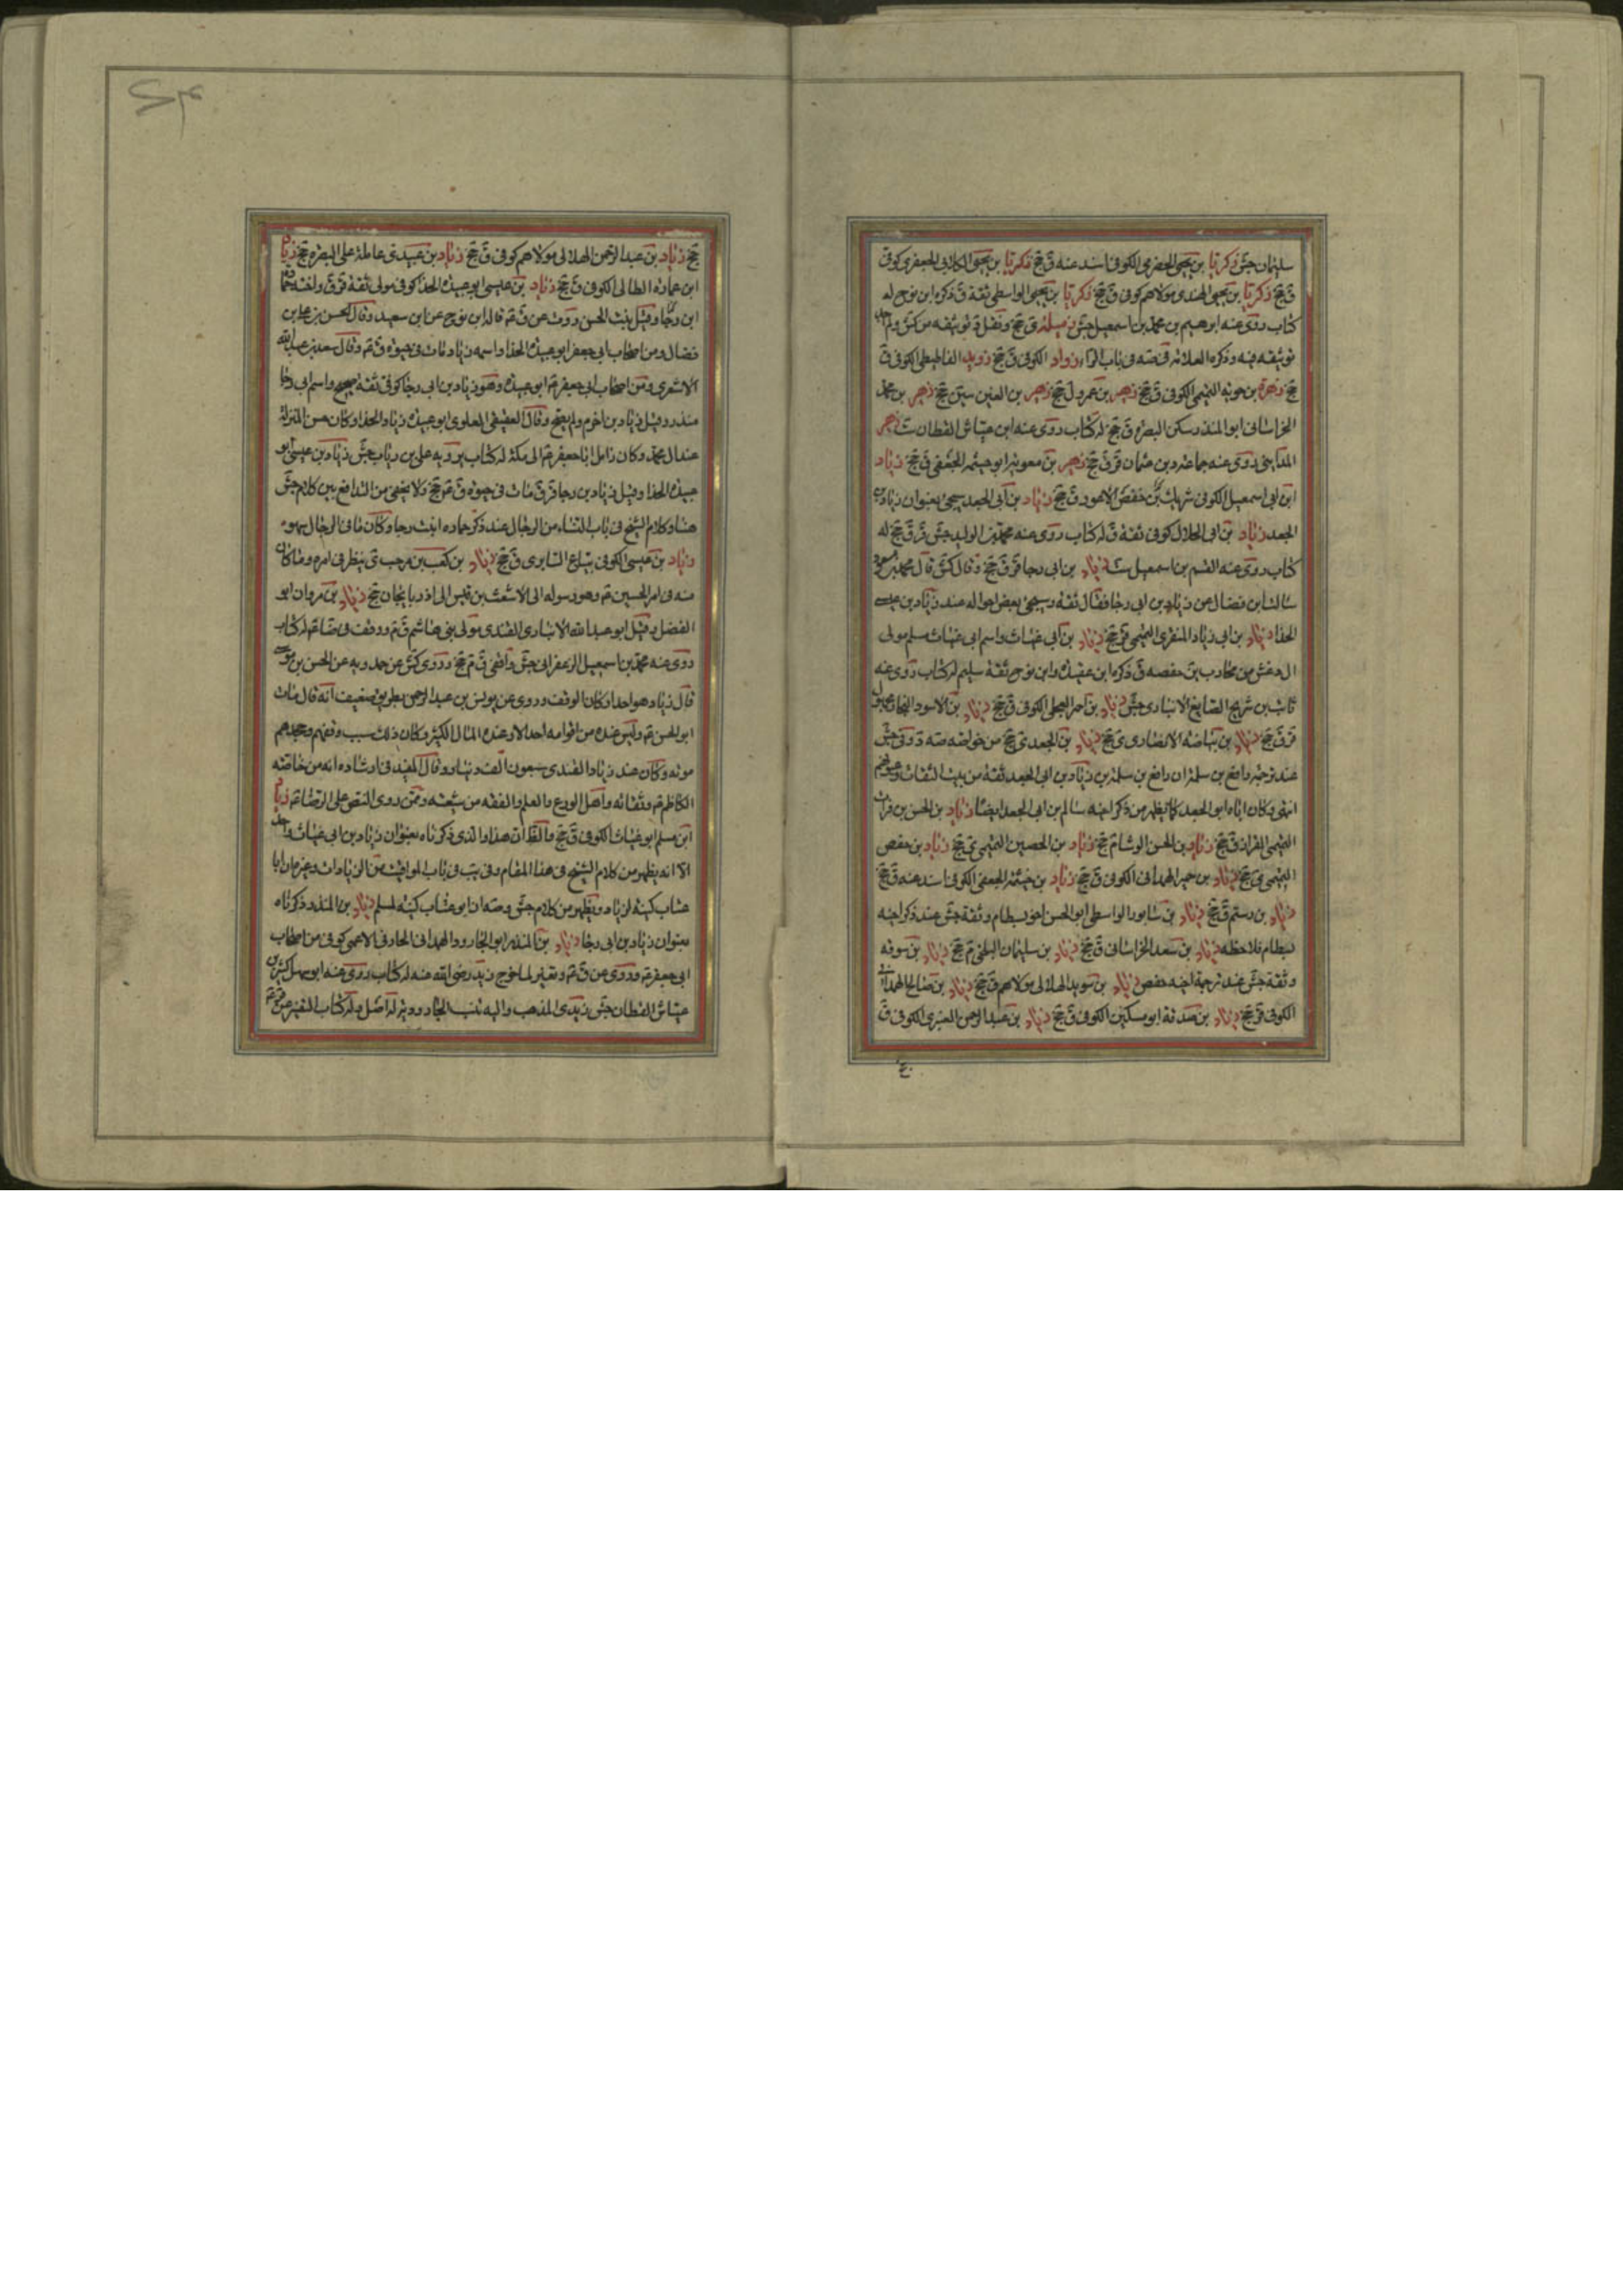 سليمان جش زكريا بن يحيى الحضرمي الكوفي اسند عنه ق جخ زكريا بن يحيى الكلابي الجعفري كوفي
ق جخ زكريا بن يحيى الهندي مولاهم كوفي ق جخ زكريا بن يحيى الواسطي ثقة ق ذكره ابن نوح له
كتاب روى عنه ابرهيم بن محمد بن اسمعيل جش زميله ى جخ ونقل د توثيقه من كش ولم اجد
توثيقه فيه وذكره العلامه في صه في باب الراء زواد الكوفي ق جخ زويد الكوفي ق
جخ زهرة بن حويه التميمي الكوفي ق جخ زهير بن عمرو ل جخ زهير بن القين سين جخ زهير بن محمد
الخراساني ابو المنذر سكن البصره ق جخ له كتاب روى عنه ابن عياش القطان ست زهير
المدايني روى عنه جماعة بن عثمان قر ق جخ زهير بن معوية ابو خيثمه الجعفي ق جخ زياد
ابن ابي اسمعيل الكوفي شريك بن حفص الاعور ق جخ زياد بن ابي الجعد سيجئ بعنوان زياد بن
الجعد زياد بن ابي الحلال كوفي ثقة ق له كتاب روى عنه محمد بن الوليد جش قر ق جخ له
كتاب روى عنه القسم بن اسمعيل ست زياد بن ابي رجا قر ق جخ وقال كش قال محمد بن مسعود
سالت ابن فضال عن زياد بن ابي رجا فقال ثقة وسيجئ بعض احواله عند زياد بن عيسى
الحذا زياد بن ابي زياد المنقري التميمي قر جخ زياد بن ابي غياث واسم ابي غياث مسلم مولى
ال دغش من محارب بن خصفه ق ذكره ابن عقده وابن نوح ثقة سليم له كتاب روى عنه
ثابت بن شريح الصايغ الانباري جش زياد بن احمر العجلي الكوفي ق جخ زياد بن الاسود النجار
قر ق جخ زياد بن بياضة الانصاري ى جخ زياد بن الجعد ى جخ من خواصه صه د وفى جش
عند ترجمة رافع بن سلمه ان رافع بن سلمة بن زياد بن ابي الجعد ثقة من بيت الثقات وعيونهم
انتهى وكان اباه ابو الجعد كما يظهر من ذكر اخيه سالم بن ابي الجعد ايضا زياد بن الحسن بن فرات
التميمي القزاز ق جخ زياد بن الحسن الوشا م جخ زياد بن الحصين التميمي ى جخ زياد بن حفص
التميمي ى جخ زياد بن خير الهمداني الكوفي ق جخ زياد بن خيثمة الجعفي الكوفي اسند عنه ق جخ
زياد بن رستم ق جخ زياد بن سابور الواسطي ابو الحسن اخو بسطام وثقة جش عند ذكر اخيه
بسطام فلاحظه زياد بن سعد الخراساني ق جخ زياد بن سليمان البلخي م جخ زياد بن سوقه
وثقة جش عند ترجمة اخيه حفص زياد بن سويد الهلالي مولاهم ق جخ زياد بن صالح الهمداني
الكوفي قر جخ زياد بن صدقة ابو مسكين الكوفي ق جخ زياد بن عبد الرحمن العنبري الكوفي ق
جخ زياد بن عبد الرحمن الهلالي مولاهم كوفي ق جخ زياد بن عبيد ى عامله على البصره جخ زياد
ابن عماره الطائي الكوفي ق جخ زياد بن عيسى ابو عبيدة الحذا كوفي مولى ثقة قر ق واخته حماده
ابن رجا وقيل بنت الحسن روت عن ق ع قاله ابن نوح عن ابن سعيد وقال الحسن بن علي بن
فضال ومن اصحاب ابي جعفر ابو عبيدة الحذا واسمه زياد مات في حيوة ق ع وقال سعد بن عبد الله
الاشعري ومن اصحاب ابي جعفر ع ابو عبيدة وهو زياد بن ابي رجا كوفي ثقة صحيح واسم ابي رجا
منذر وقيل زياد بن اخرم ولم يصح وقال العقيقي العلوي ابو عبيدة زياد الحذا وكان حسن المنزلة
عند ال محمد وكان زامل ابا جعفر ع الى مكة له كتاب يرويه علي بن رئاب جش زياد بن عيسى ابو
عبيدة الحذا وقيل زياد بن رجا قر ق مات في حيوة ق ع جخ ولا يخفى من التدافع بين كلام جش
هنا وكلام الشيخ في باب النساء من الرجال عند ذكر حماده ابنت رجا وكان ما في الرجال سهو
زياد بن عيسى الكوفي بياع السابري ق جخ زياد بن كعب بن مرحب ى ينظر في امره وما كان
منه في امر الحسين ع وهو رسوله الى الاشعث بن قيس الى اذربايجان جخ زياد بن مروان ابو
الفضل وقيل ابو عبد الله الانباري القندي مولى بني هاشم ق م ووقف في ضا ع له كتاب
روى عنه محمد بن اسمعيل الزعفراني جش واقفي ق م جخ وروى كش عن حمدويه عن الحسن بن موسى
قال زياد هو احد اركان الوقف وروى عن يونس بن عبد الرحمن بطريق ضعيف انه قال مات
ابو الحسن ع وليس عنده من اقوامه احد الا وعنده المال الكثير وكان ذلك سبب وقفهم وجحدهم
موته وكان عند زياد القندي سبعون الف دينار وقال المفيد في ارشاده انه من خاصة
الكاظم ع وثقاته واهل الورع والعلم والفقه من شيعته وممن روى النص على الرضا ع زياد
ابن مسلم ابو غياث الكوفي ق جخ والظ ان هذا والذي ذكرناه بعنوان زياد بن ابي غياث واحد
الا انه يظهر من كلام الشيخ في هذا المقام وفي يب في باب المواقيت من الزيادات وغيرهما ان ابا
عتاب كنية لزياد ويظهر من كلام جش وصه ان ابو عتاب كنية لمسلم زياد بن المنذر ذكرناه
بعنوان زياد بن ابي رجا زياد بن المنذر ابو الجارود الهمداني الخارفي الاعمى كوفي من اصحاب
ابي جعفر ع وروى عن ق ع وتغير لما خرج زيد رضي الله عنه له كتاب روى عنه ابو سهل كثير بن
عياش القطان جش زيدي المذهب واليه تنسب الجاروديه له اصل وله كتاب التفسير عن قر ع